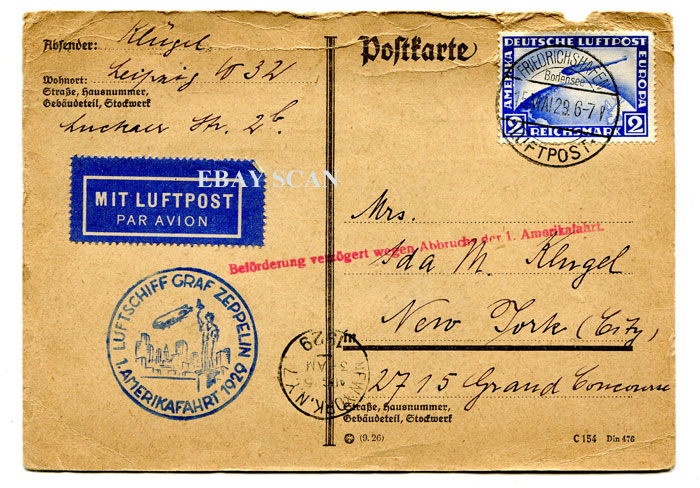 Absender: Klügel
Wohnort: Leipzig W 32
Straße, Hausnummer,
Gebäudeteil, Stockwerk
Luckaer Str. 2b.
MIT LUFTPOST
PAR AVION
EBAY SCAN
LUFTSCHIFF GRAF ZEPPELIN
1. AMERIKAFAHRT. 1929
Postkarte
DEUTSCHE LUFTPOST
AMERIKA
EUROPA
2 REICHSMARK 2
FRIEDRICHSHAFEN
Bodensee
MAI 29. 6-7
LUFTPOST.
Mrs.
Beförderung verzögert wegen Abbruchs der 1. Amerikafahrt.
Ida M. Klugel
New York (City)
2715 Grand Concourse
NEW YORK, N.Y.
AUG 5
3 AM
1929
Straße, Hausnummer,
Gebäudeteil, Stockwerk
(9.26)
C 154 Din 476